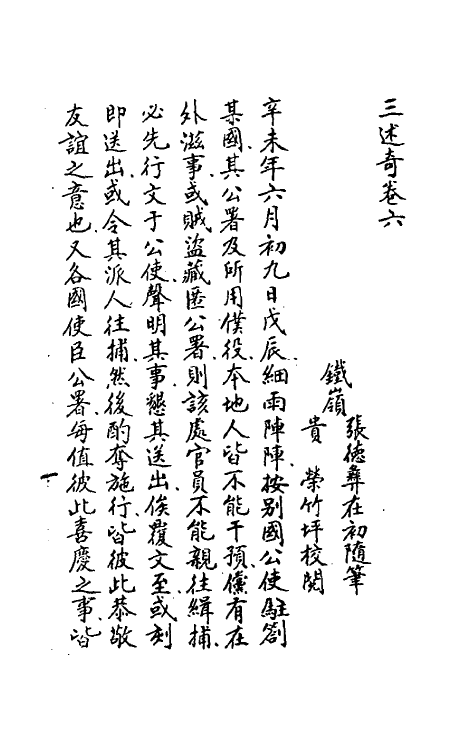 三述奇卷六
鐵嶺張德彝在初隨筆
貴榮竹坪校閱
辛未年六月初九日戊辰細雨陣陣按别國公使駐劄
某國其公署及所用僕役本地人皆不能干預儻有在
外滋事或賊盜藏匿公署則該處官員不能親往緝捕
必先行文于公使聲明其事懇其送出俟覆文至或刻
即送出或令其派人往捕然後酌奪施行皆彼此恭敬
友誼之意也又各國使臣公署每值彼此喜慶之事皆
一